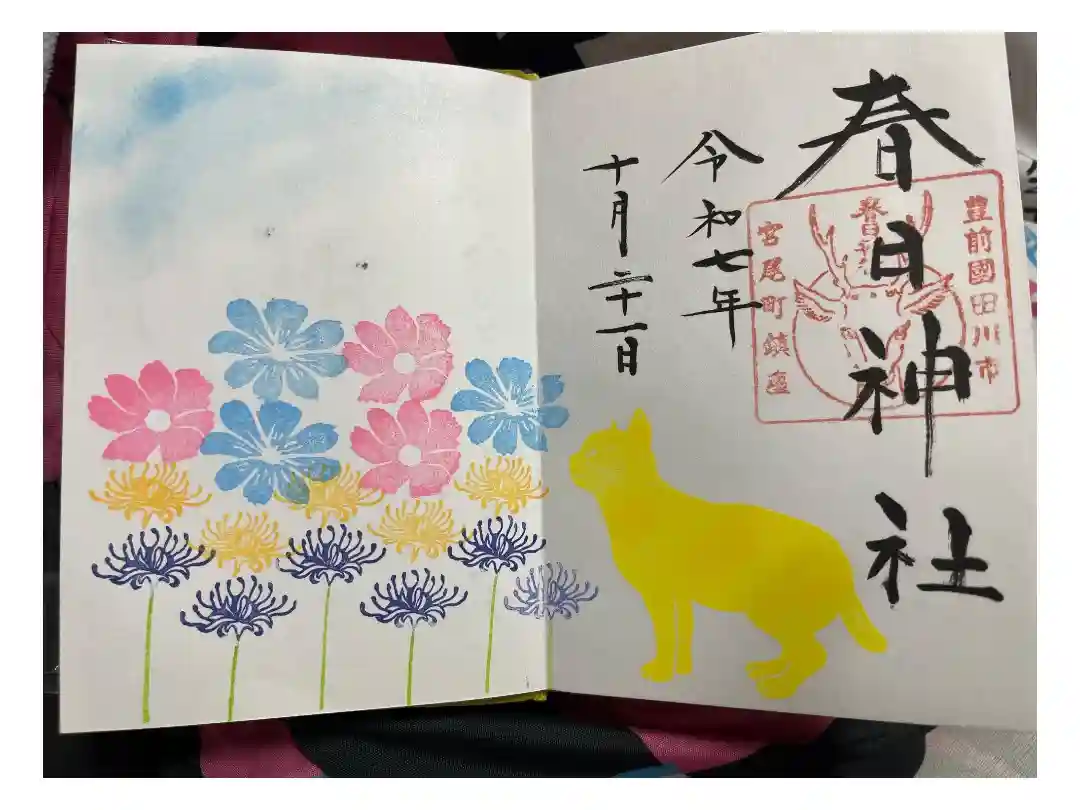 春日神社
豊前國田川市
春日神社
宮尾町鎮座
令和七年
十月二十一日